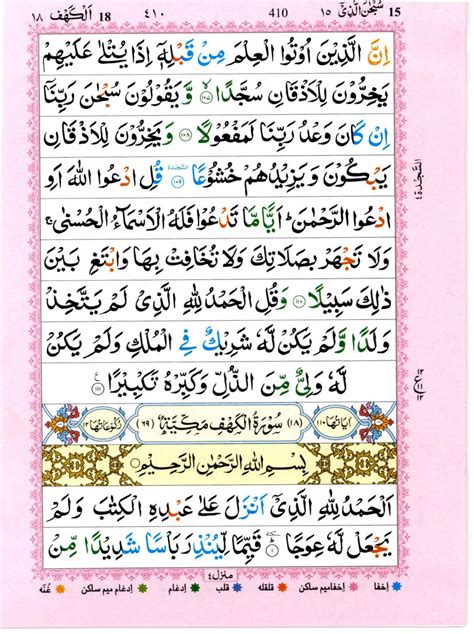 15 سُبْحٰنَ الَّذِيْۤ ١٥ 410 ٤١٠ 18 اَلْكَهْف ١٨
اِنَّ الَّذِيْنَ اُوْتُوا الْعِلْمَ مِنْ قَبْلِهٖۤ اِذَا يُتْلٰى عَلَيْهِمْ
يَخِرُّوْنَ لِلْاَذْقَانِ سُجَّدًا ۙ﴿۱۰۷﴾ وَّيَقُوْلُوْنَ سُبْحٰنَ رَبِّنَاۤ
اِنْ كَانَ وَعْدُ رَبِّنَا لَمَفْعُوْلًا ﴿۱۰۸﴾ وَيَخِرُّوْنَ لِلْاَذْقَانِ
يَبْكُوْنَ وَيَزِيْدُهُمْ خُشُوْعًا ۩﴿۱۰۹﴾ السجدة قُلِ ادْعُوا اللّٰهَ اَوِ
السَّجْدَة ٤
ادْعُوا الرَّحْمٰنَ ؕ اَيًّا مَّا تَدْعُوْا فَلَهُ الْاَسْمَآءُ الْحُسْنٰى ۚ
وَلَا تَجْهَرْ بِصَلَاتِكَ وَلَا تُخَافِتْ بِهَا وَابْتَغِ بَيْنَ
ذٰلِكَ سَبِيْلًا ﴿۱۱۰﴾ وَقُلِ الْحَمْدُ لِلّٰهِ الَّذِيْ لَمْ يَتَّخِذْ
وَلَدًا وَّلَمْ يَكُنْ لَّهٗ شَرِيْكٌ فِي الْمُلْكِ وَلَمْ يَكُنْ
لَّهٗ وَلِيٌّ مِّنَ الذُّلِّ وَكَبِّرْهُ تَكْبِيْرًا ﴿۱۱۱﴾
١٢ ع ١١ ١٢
اٰيَاتُهَا ١١٠ (١٨) سُوْرَةُ الْكَهْفِ مَكِّيَّةٌ (٦٩) رُكُوْعَاتُهَا ١٢
بِسْمِ اللّٰهِ الرَّحْمٰنِ الرَّحِيْمِ
اَلْحَمْدُ لِلّٰهِ الَّذِيْۤ اَنْزَلَ عَلٰى عَبْدِهِ الْكِتٰبَ وَلَمْ
يَجْعَلْ لَّهٗ عِوَجًا ؕ﴿۱﴾ قَيِّمًا لِّيُنْذِرَ بَاْسًا شَدِيْدًا مِّنْ
منزل ٤
اِخفا اِخفا میم ساکن قلقله قلب اِدغام اِدغام میم ساکن غُنّه